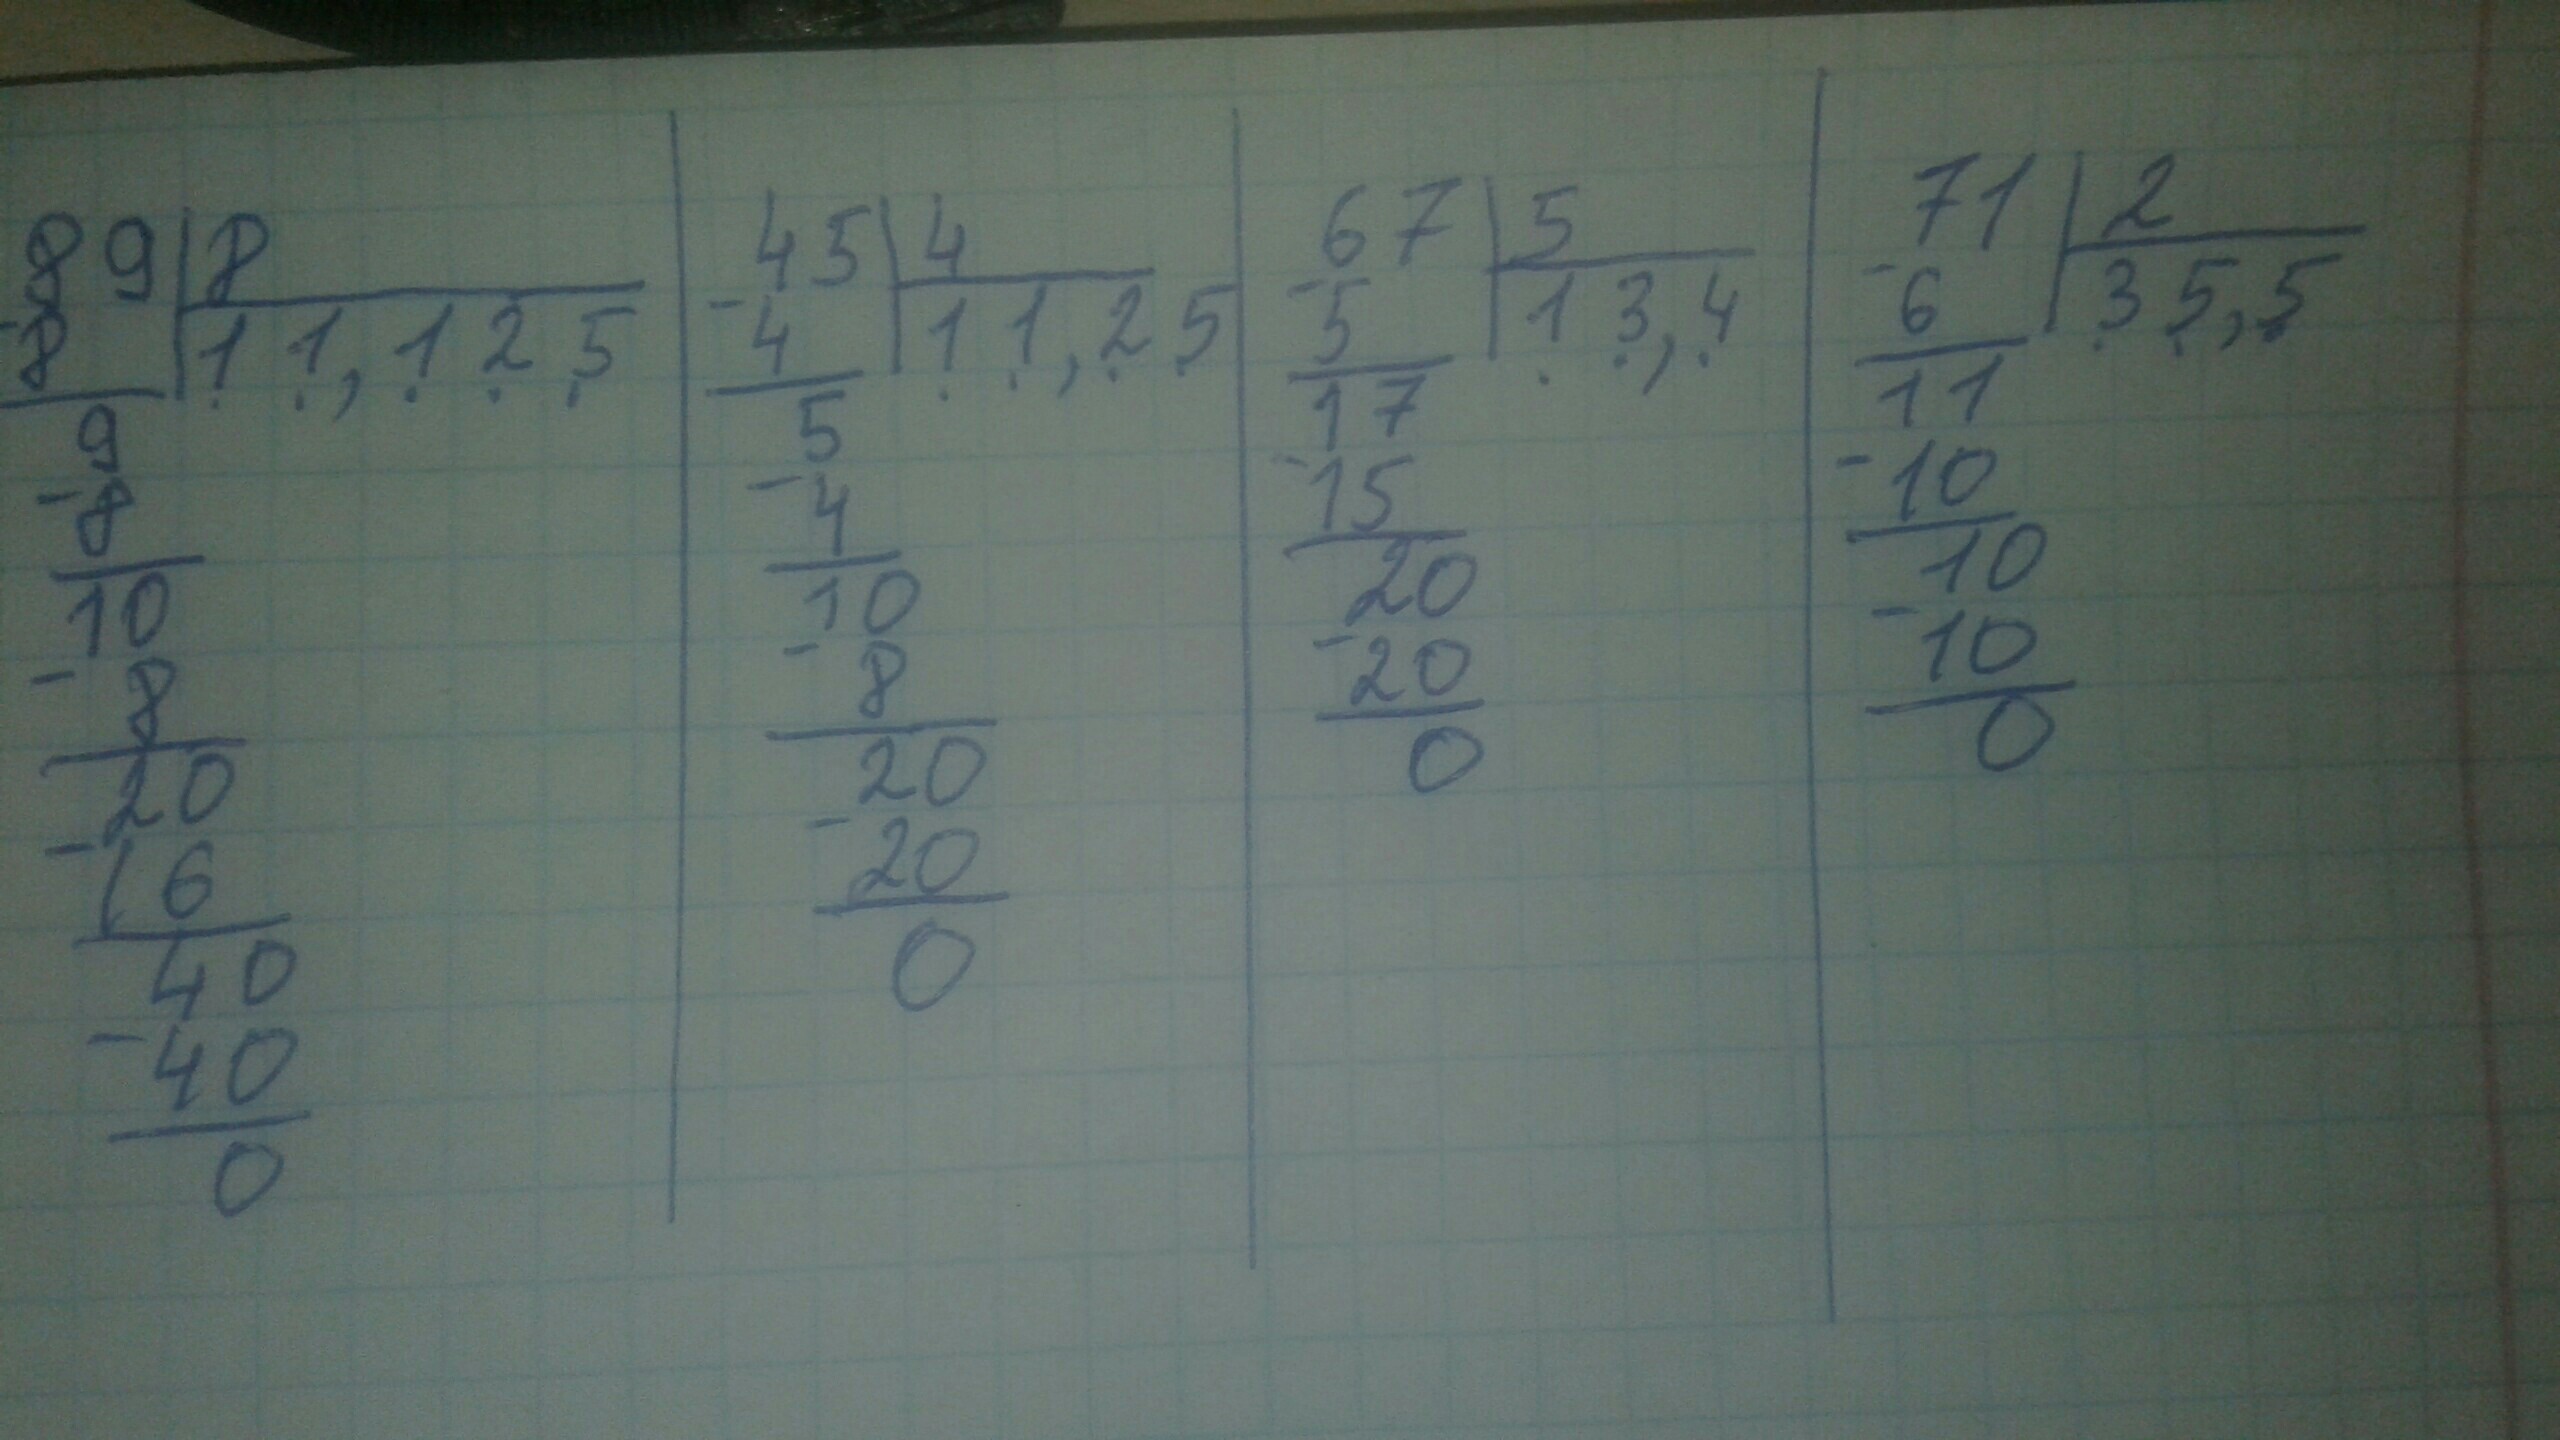 89 8
-8 11,125
9
-8
10
- 8
20
-16
40
-40
0
45 4
-4 11,25
5
-4
10
- 8
20
-20
0
67 5
-5 13,4
17
-15
20
-20
0
71 2
-6 35,5
11
-10
10
-10
0